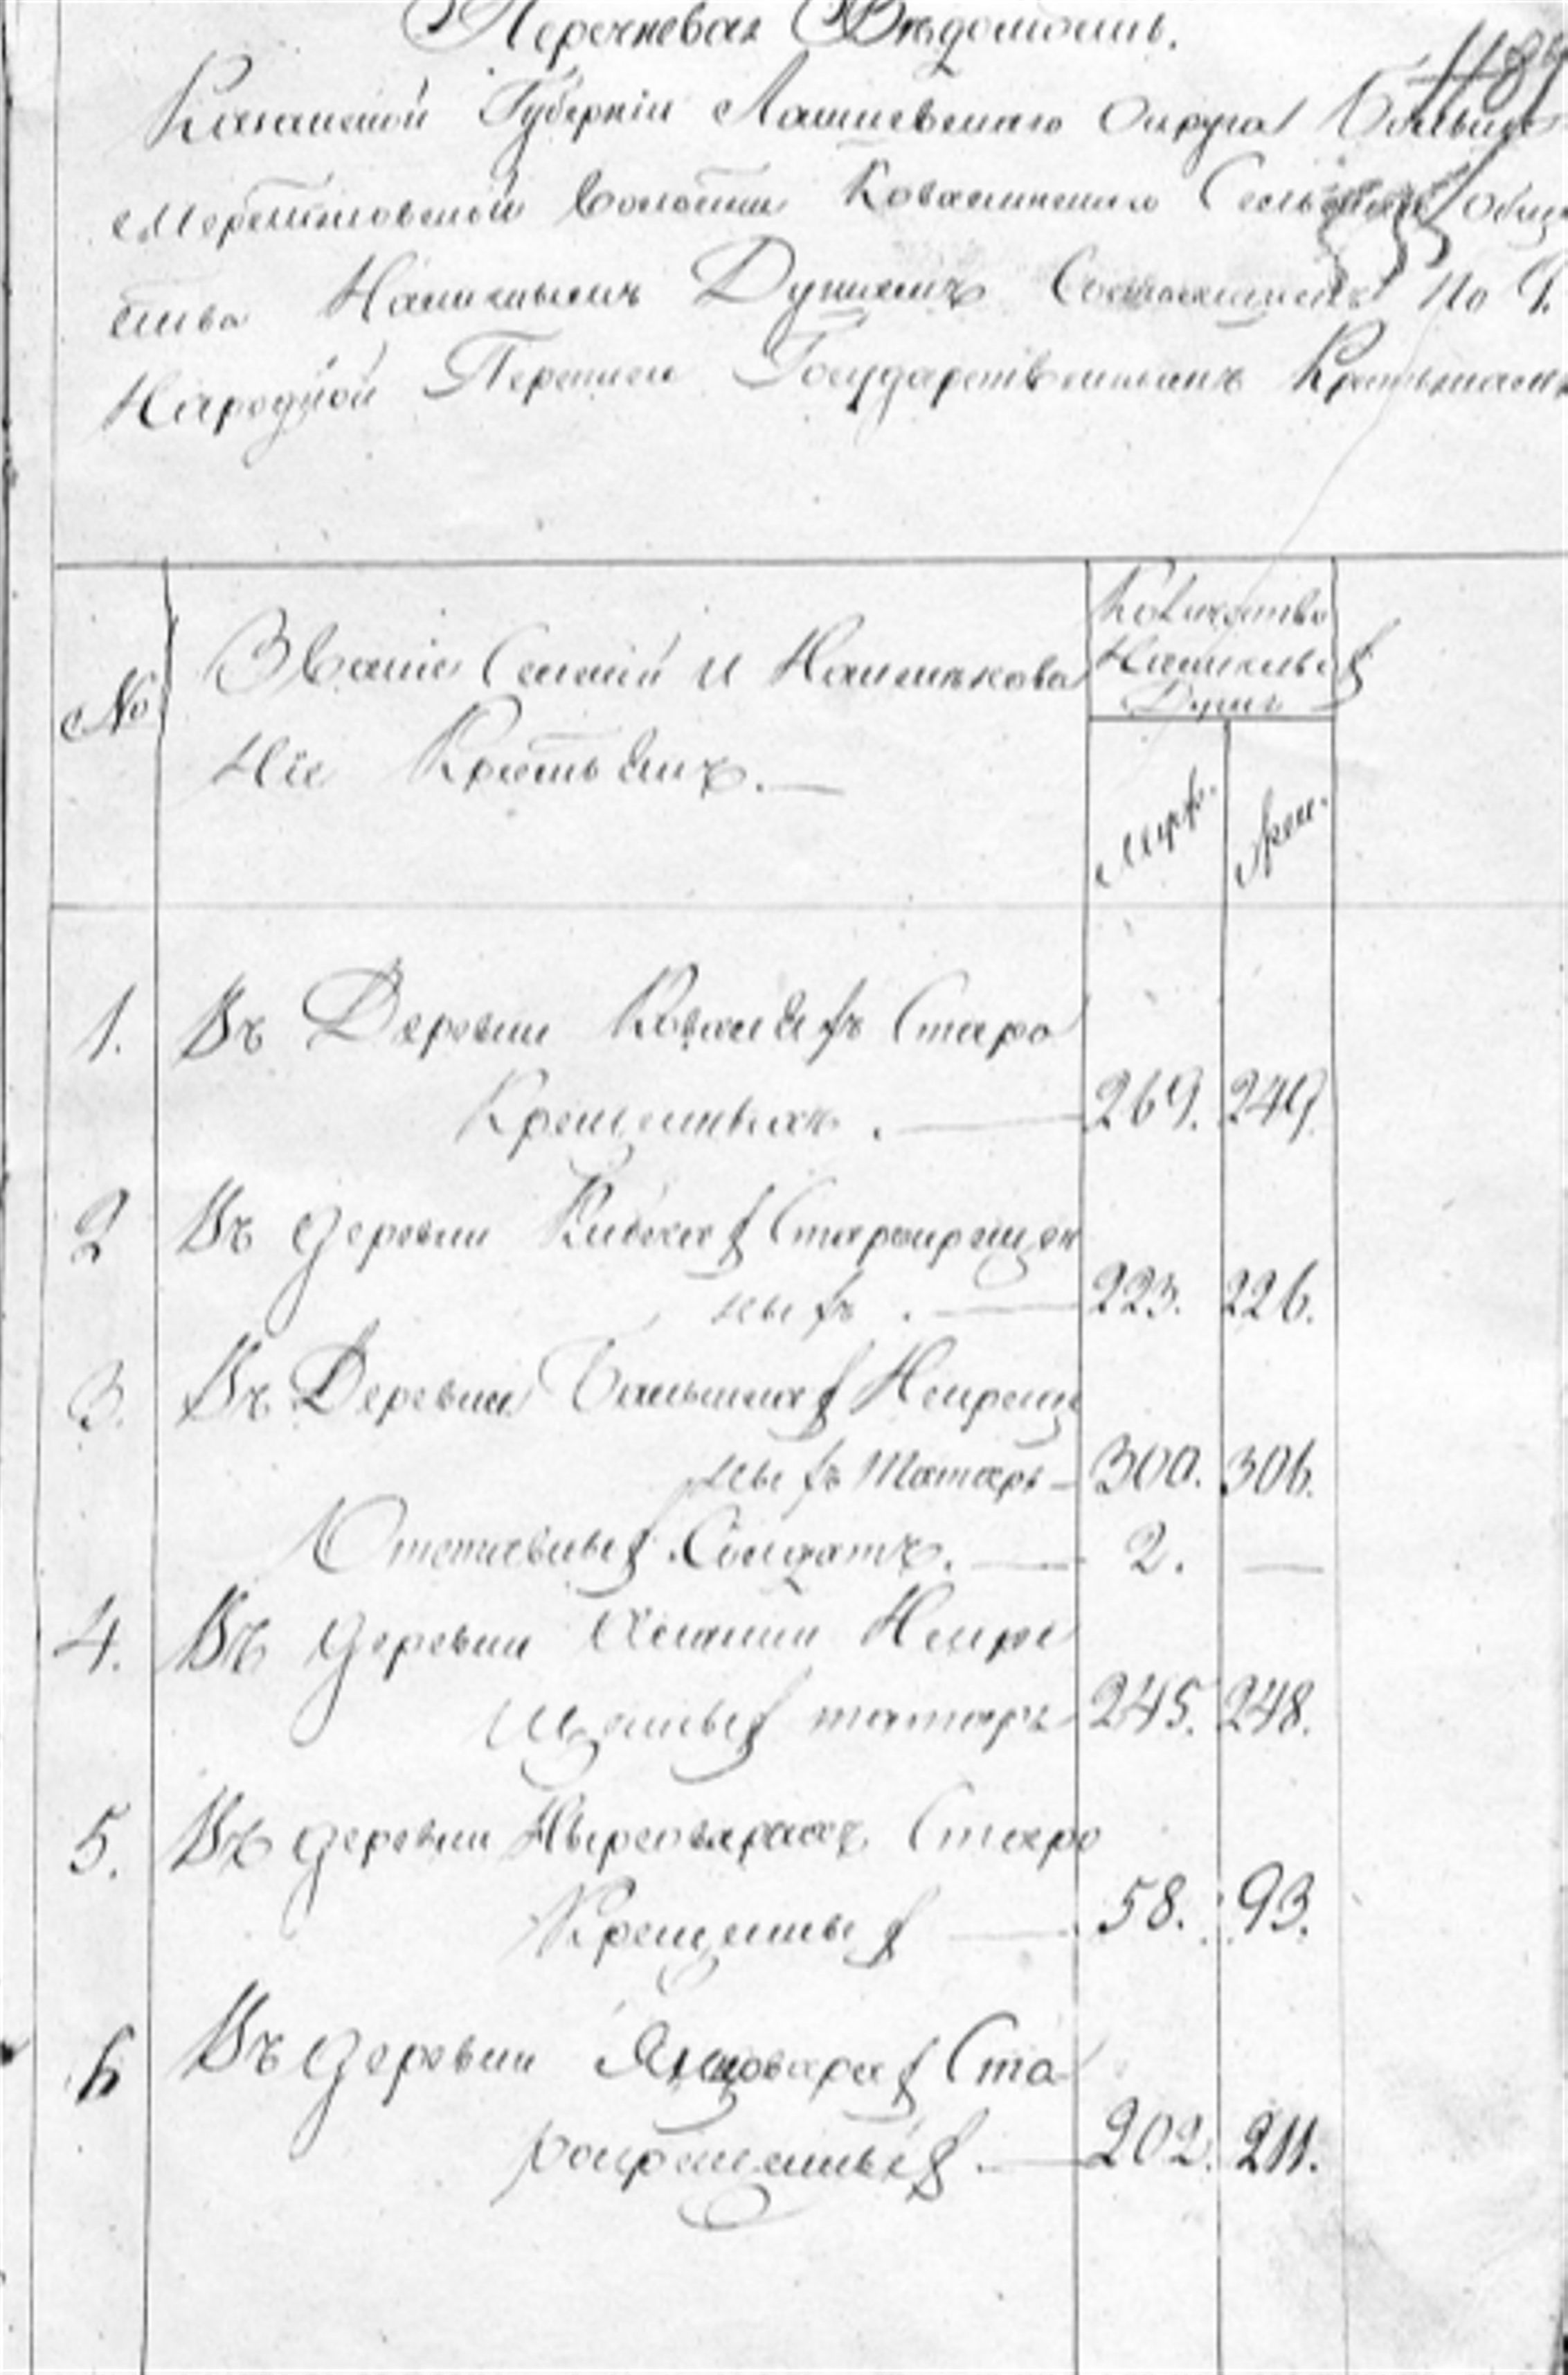 Перечневая Вѣдомость.
Казанской Губерніи Лаишевскаго Округа Больше
Меретяковской Волости Ковалинскаго Сельскаго Обще
ства Наличнымъ Душамъ Состоящимъ По 9.
Народной Переписи Государственнымъ Крестьянамъ
№ Званіе Селеній и Наименькова
ніе Крестьянъ.—
Количество
Наличныхъ
Душъ
Муж. Жен.
1. Въ Деревни Ковалях Старо
Крещенныхъ. — 269. 249.
2 Въ деревни Старокрещен
ныхъ. — 223. 226.
3. Въ Деревни Некрещ
ныхъ Татаръ — 300. 306.
Отставныхъ Солдатъ. — 2. —
4. Въ деревни Некре
щенныхъ татаръ 245. 248.
5. Въ деревни Нырсоварахъ Старо
Крещенных — 58. 93.
6 Въ деревни Янцоварах Ста
рокрещенных. — 202. 211.